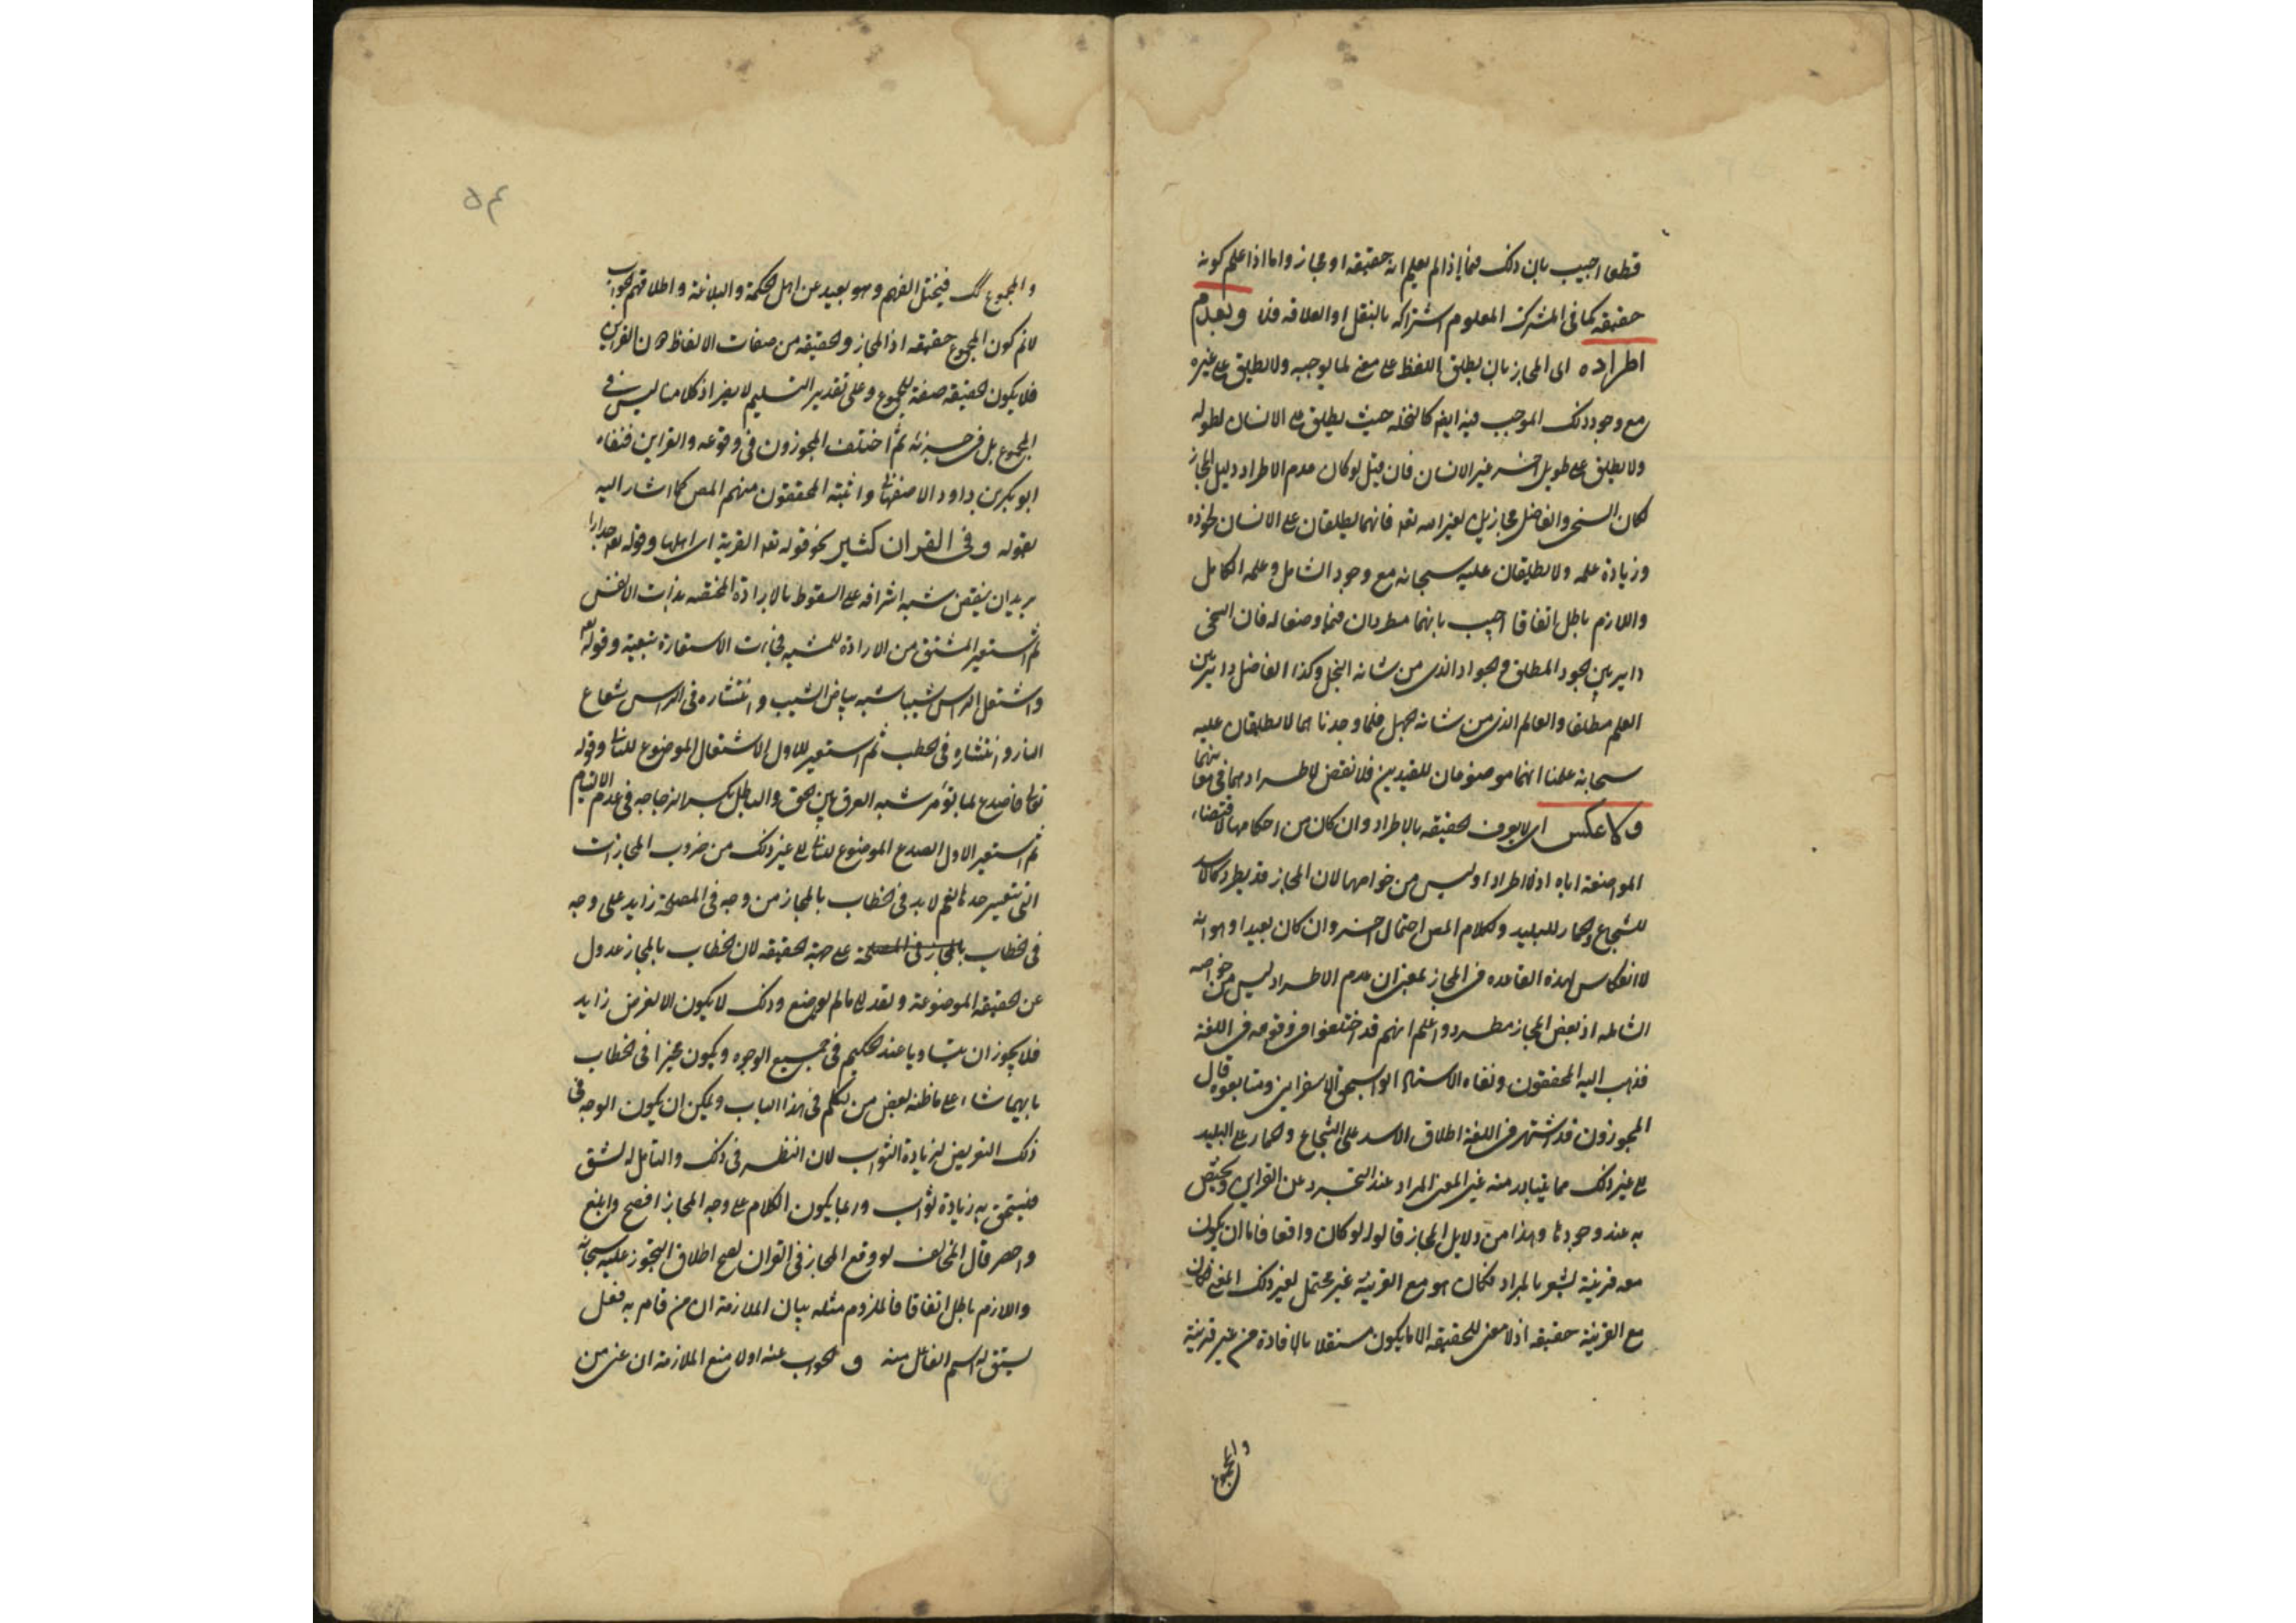 قطعا اجيب بان ذلك فيما اذا لم يعلم انه حقيقة او مجاز واما اذا علم كونه
حقيقة كما فى المشترك المعلوم اشتراكه بالنقل او العلاقه فلا وبعدم
اطراده اى المجاز بان يطلق اللفظ على معنى لما يوجبه ولا يطلق على غيره
مع وجود ذلك الموجب فيه ايضا كالنخله حيث يطلق على الانسان لطوله
ولا يطلق على طويل اخر غير الانسان فان قيل لو كان عدم الاطراد دليل المجاز
لكان السخى والفاضل مجازين لغير الله تعه فانهما يطلقان على الانسان لجوده
وزيادة علمه ولا يطلقان عليه سبحانه مع وجود الشامل وعلمه الكامل
واللازم باطل اتفاقا اجيب بانهما مطردان فيما وضعا له فان السخى
داير بين الجود المطلق والجواد الذى من شانه البخل وكذا الفاضل داير بين
العلم مطلقا والعالم الذى من شانه الجهل فلما وجدناهما لا يطلقان عليه
سبحانه علمنا انهما موضوعان للقيدين فلا نقض لاطرادهما فى معانيهما
ولا عكس اى لا يعرف الحقيقه بالاطراد وان كان من احكامها لاقتضاء
المواضعة اياه اذ الاطراد ليس من خواصها لان المجاز قد يطرد كالاسد
للشجاع والحمار للبليد ولكلام المص احتمال اخر وان كان بعيدا وهو انه
لا انعكاس لهذه القاعده فى المجاز بمعنى ان عدم الاطراد ليس من خواصه
الشامله اذ بعض المجاز مطرد واعلم انهم قد اختلفوا فى وقوعه فى اللغة
فذهب اليه المحققون ونفاه الاستاد ابو اسحق الاسفراينى ومتابعوه قال
المجوزون قد اشتهر فى اللغة اطلاق الاسد على الشجاع والحمار على البليد
الى غير ذلك مما يتبادر منه غير المعنى المراد عند التجرد عن القراين ويختص
به عند وجودها وهذا من دلايل المجاز قالوا لو كان واقعا فاما ان يكون
معه قرينة تشعر بالمراد فكان هو مع القرينة غير محتمل لغير ذلك المعنى فكان
مع القرينة حقيقه اذ لا معنى للحقيقه الا ما يكون مستقلا بالافادة من غير قرينة
والمجموع
٥٤
والمجموع ك فيختل الفهم وهو بعيد عن اهل الحكمة والبلاغة واطلاقهم الجواب
لانم كون المجموع حقيقه اذ المجاز والحقيقه من صفات الالفاظ دون القراين
فلا يكون الحقيقه صفة للمجموع وعلى تقدير التسليم لا يضر اذ كلامنا ليس فى
المجموع بل فى جزئه ثم اختلف المجوزون فى وقوعه والقران فنفاه
ابو بكر بن داود الاصفهانى واثبته المحققون منهم المص كما اشار اليه
بقوله وفى القران كثير نحو قوله تعه القرية اى اهلها وقوله تعه جدارا
يريد ان ينقض شبه اشرافه على السقوط بالارادة المختصه بذات الانفس
ثم استعير المشتق من الارادة للمشبه فجاءت الاستعارة تبعية وقوله تعه
واشتعل الراس شيبا شبه بياض الشيب وانتشاره فى الراس شعاع
النار وانتشاره فى الحطب ثم استعير للاول الاشتعال الموضوع للثانى وقوله
تعالى فاصدع بما تؤمر شبه الفرق بين الحق والباطل بكسر الزجاجه فى عدم الالتيام
ثم استعير الاول الصدع الموضوع للثانى الى غير ذلك من ضروب المجازات
التى يتعسر حدها نعم لا بد فى الخطاب بالمجاز من وجه فى المصلحة زايد على وجه
فى الخطاب بالمجاز فى المصلحة على جهة الحقيقه لان الخطاب بالمجاز عدول
عن الحقيقه الموضوعة وتعد الى ما لم يوضع وذلك لا يكون الا لغرض زايد
فلا يجوز ان يتساويا عند الحكيم فى جميع الوجوه ويكون مخيرا فى الخطاب
بايهما شاء على ما ظنه بعض من تكلم فى هذا الباب ويمكن ان يكون الوجه فى
ذلك التعريض لزيادة الثواب لان النظر فى ذلك والتامل له لشق
فيستحق به زيادة ثواب وربما يكون الكلام على وجه المجاز افصح وابلغ
واخصر قال المخالف لو وقع المجاز فى القران لصح اطلاق المتجوز عليه سبحانه
واللازم باطل اتفاقا فالملزوم مثله بيان الملازمة ان من قام به فعل
يشتق له اسم الفاعل منه والجواب عنه اولا منع الملازمة ان عنى من